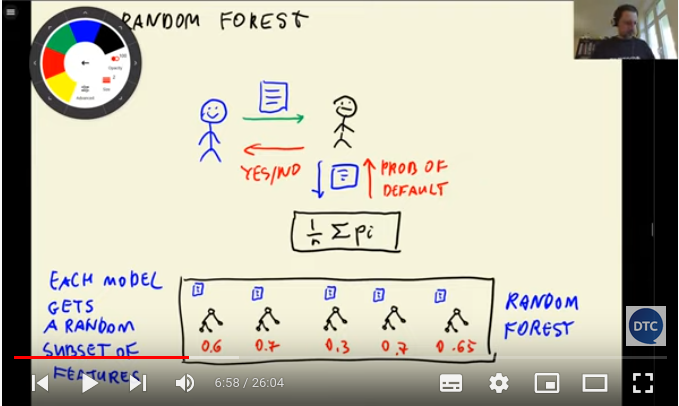 RANDOM FOREST
YES/NO
PROB OF
DEFAULT
1/n Σ pi
EACH MODEL
GETS
A RANDOM
SUBSET OF
FEATURES
0.6 0.7 0.3 0.7 0.65
RANDOM
FOREST
DTC
6:58 / 26:04